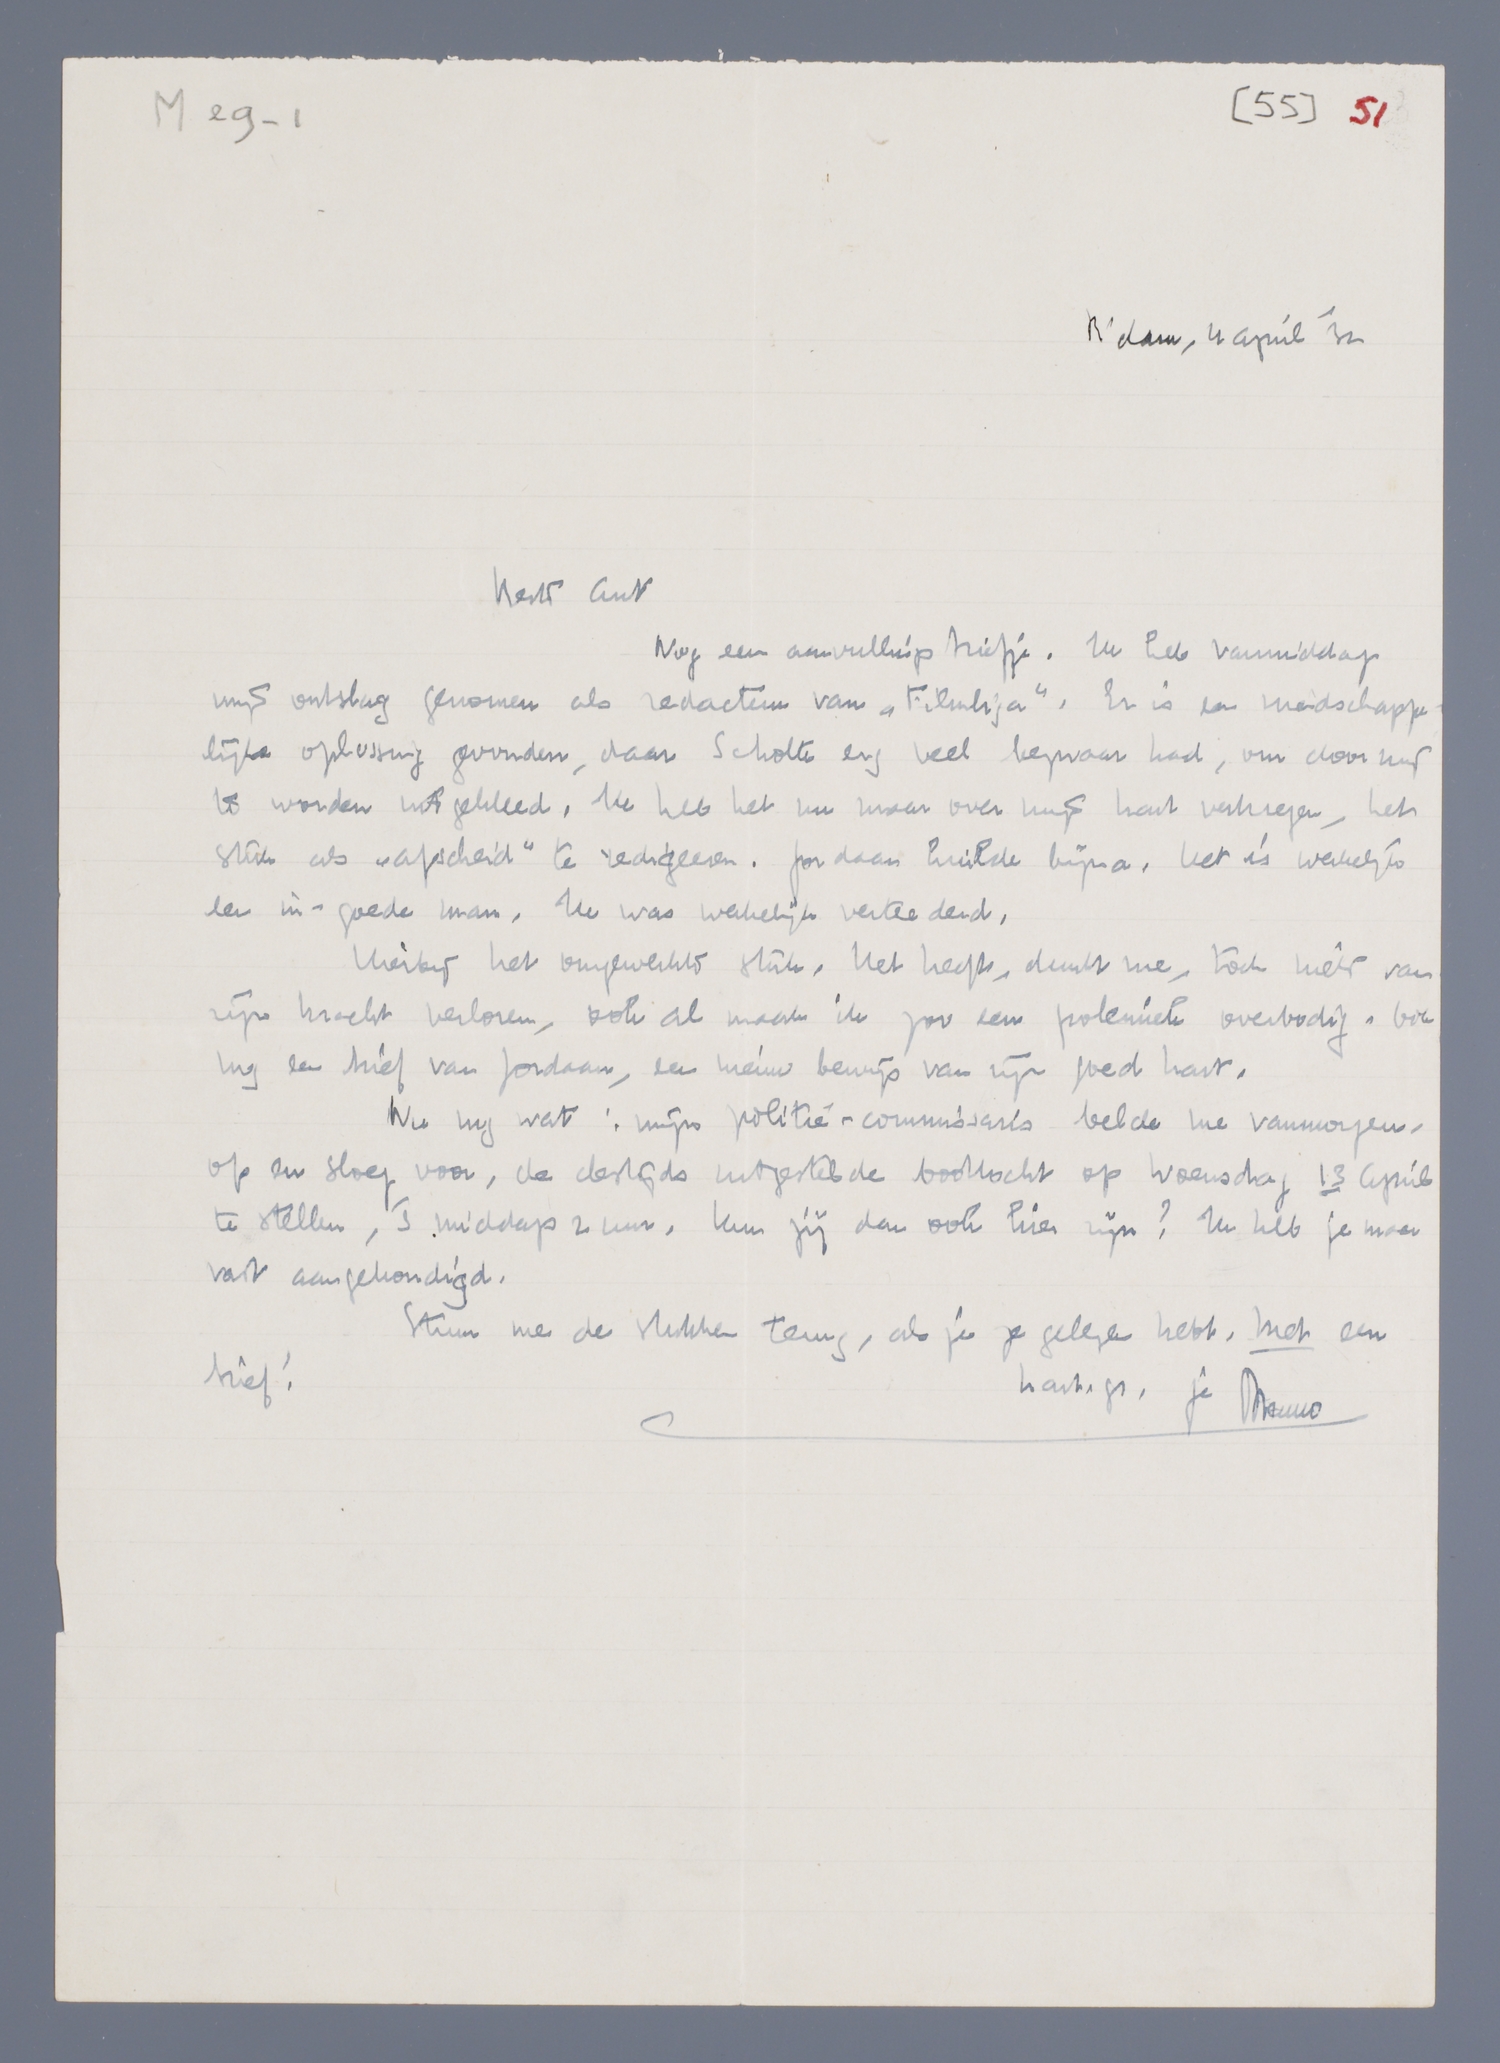 M eg-1
[55] 51
R'dam, 4 april '32
Beste Ant
Nog een aanvulling briefje. Ik heb vanmiddag
mijn ontslag genomen als redacteur van „Filmliga”. Er is een vriendschappe-
lijke oplossing gevonden, daar Scholte erg veel bezwaar had, om door mij
te worden uitgekleed. Ik heb het nu maar over mijn hart verkregen, het
stuk als „afscheid” te redigeeren. Jordaan huilde bijna. Het is werkelijk
een in-goede man. Ik was werkelijk verteederd.
Hierbij het omgewerkte stuk. Het heeft, dunkt me, toch niets van
zijn kracht verloren, ook al maak ik zoo een polemiek overbodig.
nog een brief van Jordaan, een nieuw bewijs van zijn goed hart.
Nu nog wat: mijn politie-commissaris belde me vanmorgen
op en sloeg voor, de destijds uitgestelde boottocht op Woensdag 13 April
te stellen, 's middags 2 uur. Kun jij dan ook hier zijn? Ik heb je maar
vast aangekondigd.
Stuur me de stukken terug, als je ze gelezen hebt. Met een
brief!
hart. gr. je Menno